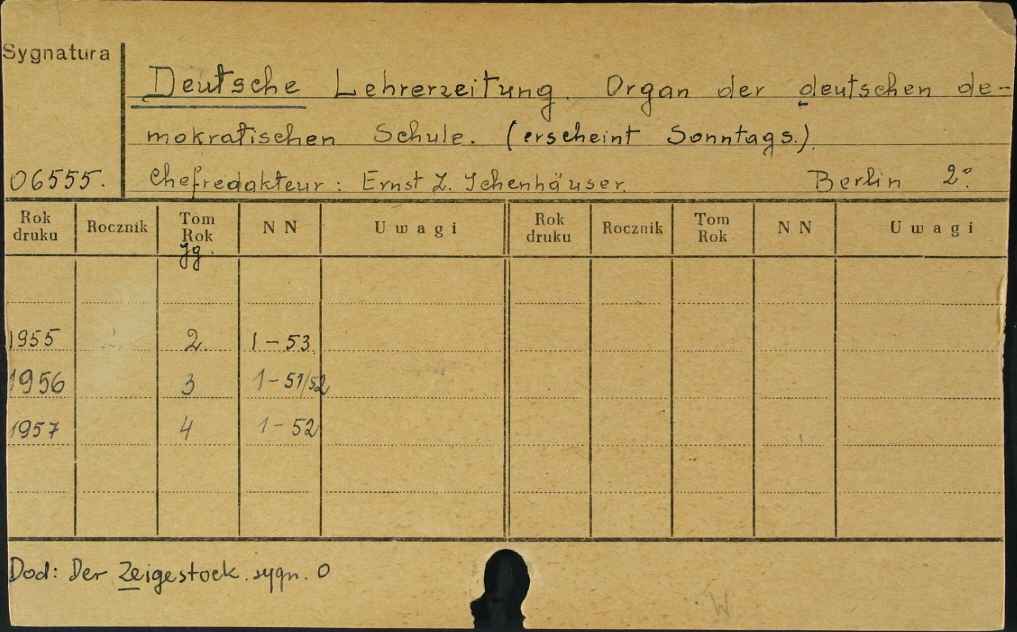 Sygnatura
Deutsche Lehrerzeitung. Organ der deutschen de-
mokratischen Schule. (erscheint Sonntags.)
06555. Chefredakteur: Ernst Z. Ichenhäuser. Berlin 2°.
Rok druku Rocznik Tom Rok NN Uwagi Rok druku Rocznik Tom Rok NN Uwagi
Jg.
1955 2. 1-53
1956 3 1-51/52
1957 4 1-52
Dod: Der Zeigestock. sygn. O
W